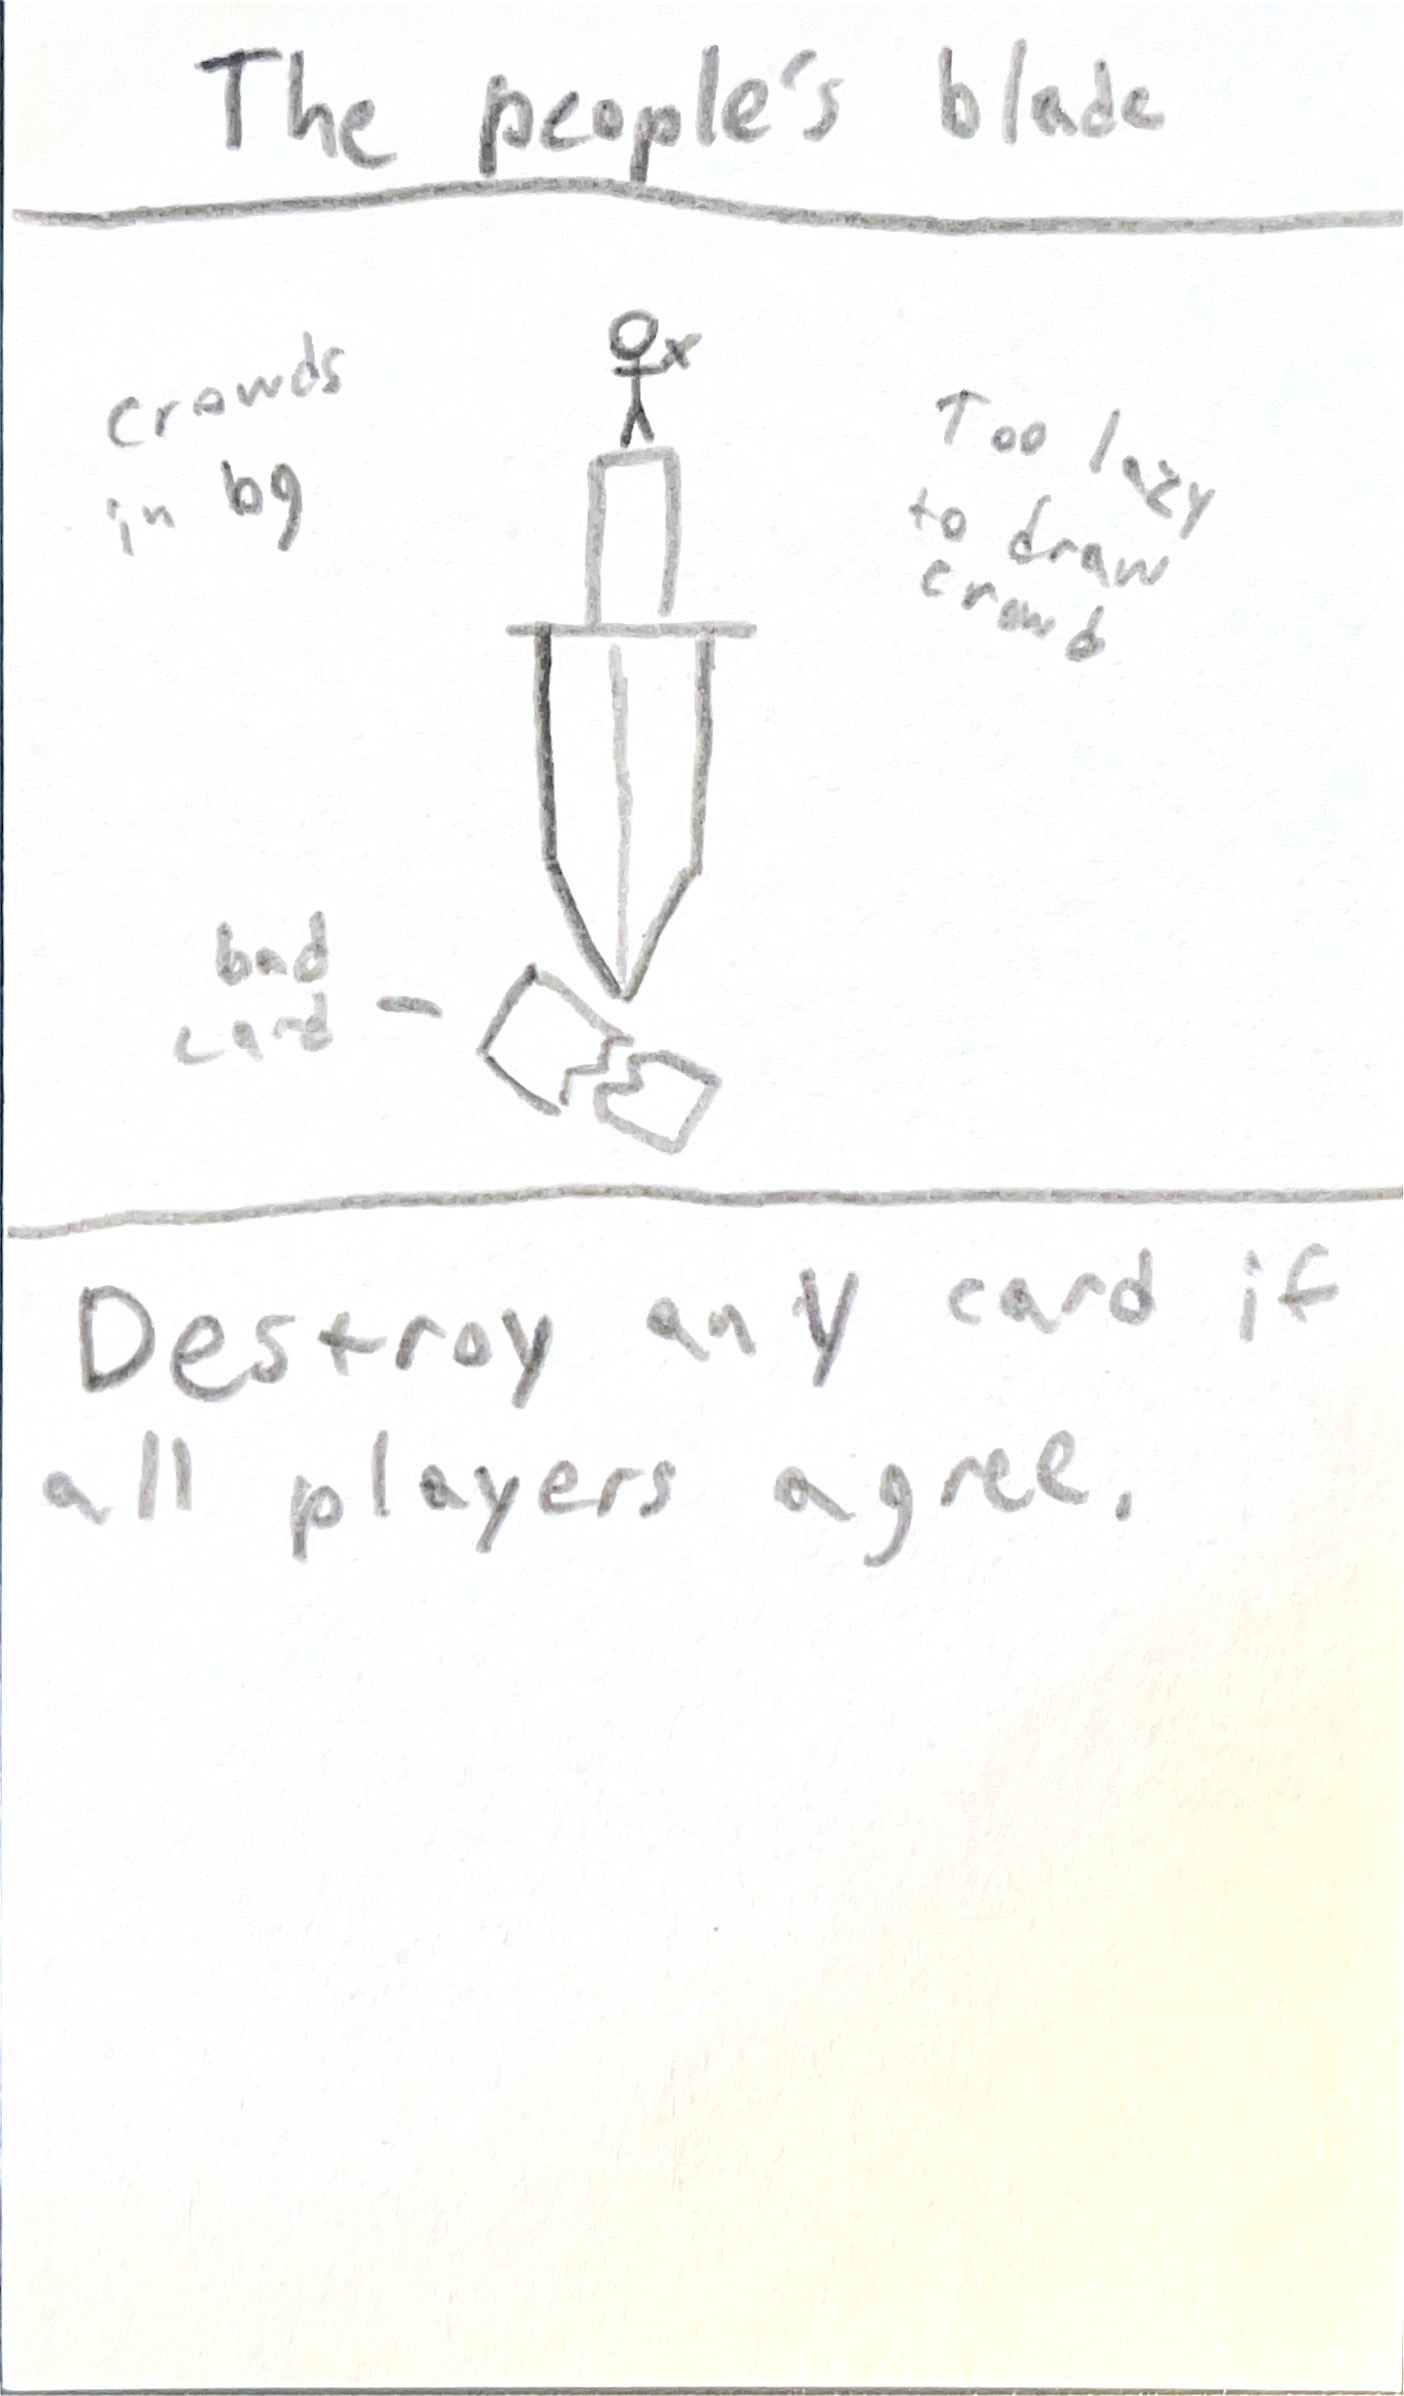 The people's blade
crowds
in bg
Too lazy
to draw
crowd
bad
card -
Destroy any card if
all players agree.